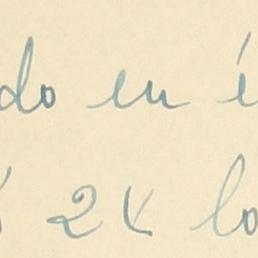 do en é
24 lo